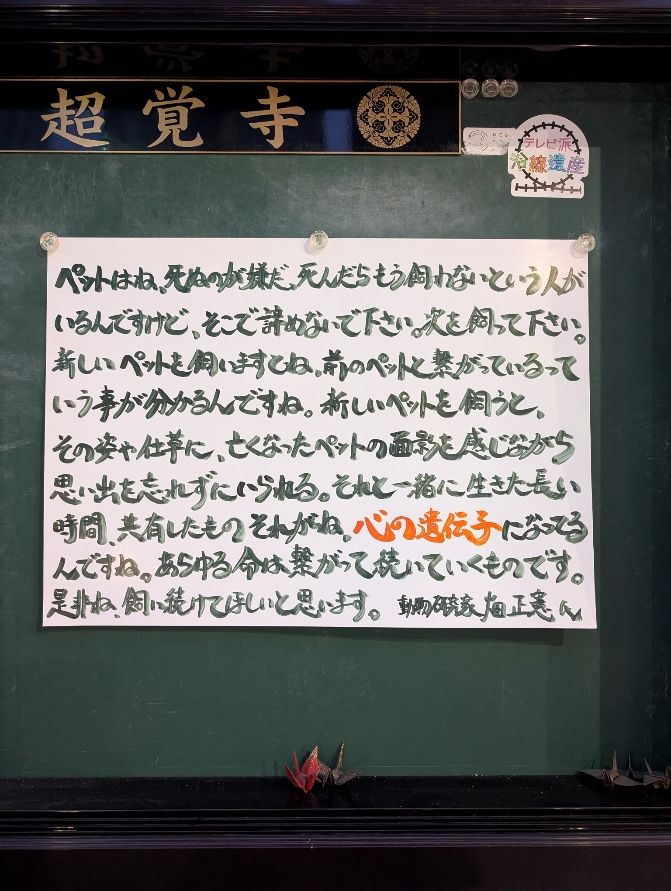 超覚寺
テレビ派
沿線遺産
ペットはね、死ぬのが嫌だ、死んだらもう飼わないという人が
いるんですけど、そこで諦めないで下さい。次を飼って下さい。
新しいペットを飼いますとね、前のペットと繋がっているって
いう事が分かるんですね。新しいペットを飼うと、
その姿や仕草に、亡くなったペットの面影を感じながら
思い出を忘れずにいられる。それと一緒に生きた長い
時間、共有したものそれがね。心の遺伝子になってる
んですね。あらゆる命は繋がって続いていくものです。
是非ね、飼い続けてほしいと思います。 動物研究家 畑正憲さん